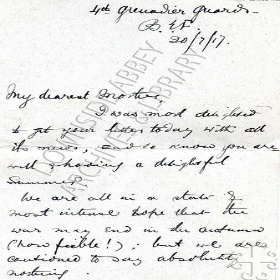 4th Grenadier Guards.
B.E.F.
20/7/17.
My dearest Mother,
I was most delighted
to get your letter today with all
the news, and to know you are
well & having a delightful
Summer.
We are all in a state of
most intense hope that the
war may end in the autumn
(how feeble!); but we are
cautioned to say absolutely
nothing.
DOWNSIDE ABBEY
ARCHIVES & LIBRARY